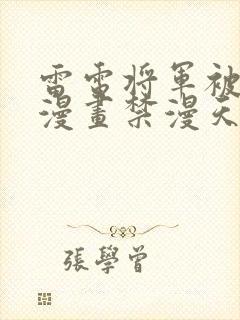 雷電将軍被
漫畫禁漫天
張學曾